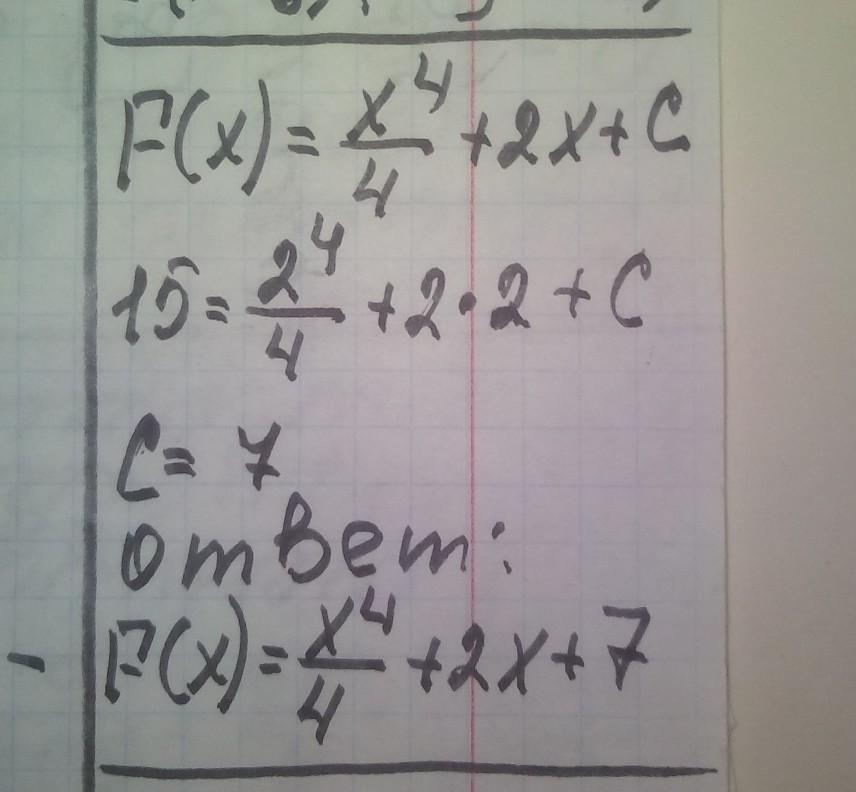 F(x) = x⁴/4 + 2x + C
15 = 2⁴/4 + 2·2 + C
C = 7
ответ:
- F(x) = x⁴/4 + 2x + 7